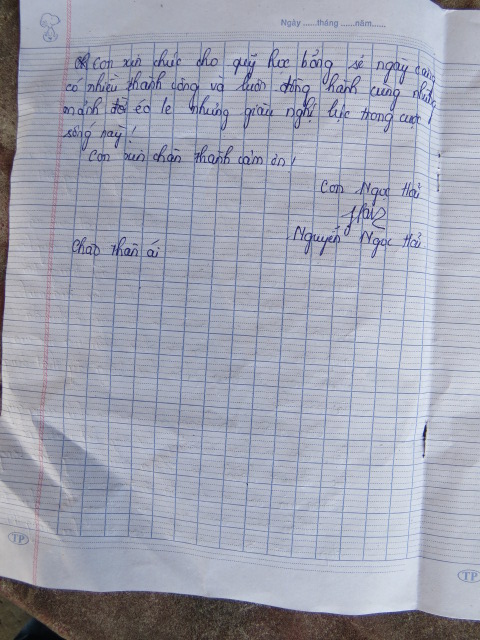 Ngày ......tháng ......năm......
Con xin chúc cho quỹ học bổng sẽ ngày càng
có nhiều thành công và luôn đồng hành cùng những
mảnh đời éo le nhưng giàu nghị lực trong cuộc
sống này!
Con xin chân thành cảm ơn!
Con Ngọc Hải
Hải
Nguyễn Ngọc Hải
Chào thân ái
TP
TP